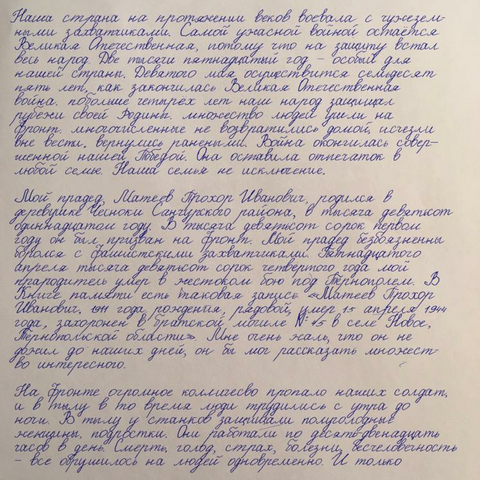 Наша страна на протяжении веков воевала с чужезем-
ными захватчиками. Самой ужасной войной остаётся
Великая Отечественная, потому что на защиту встал
весь народ. Две тысячи пятнадцатый год - особый для
нашей страны. Девятого мая осуществится семьдесят
пять лет, как закончилась Великая Отечественная
война. побольше четырёх лет наш народ защищал
рубежи своей Родины. множество людей ушли на
фронт. многочисленные не возвратились домой, исчезли
вне вести, вернулись ранеными. Война окончилась совер-
шенной нашей Победой. Она оставила отпечаток в
любой семье. Наша семья не исключение.
Мой прадед, Матеев Прохор Иванович, родился в
деревушке Чесноки Санчурского района, в тысяча девятьсот
одиннадцатом году. В тысяча девятьсот сорок первом
году он был призван на фронт. Мой прадед безбоязненны
боролся с фашистскими захватчиками. Пятнадцатого
апреля тысяча девятьсот сорок четвертого года мой
прародитель умер в жестоком бою под Тернополем. В
Книге памяти есть таковая запись «Матеев Прохор
Иванович, 1911 года рождения, рядовой, умер 15 апреля 1944
года, захоронен в братской могиле №15 в селе Новое,
Тернопольской области». Мне очень жаль, что он не
дожил до наших дней, он бы мог рассказать множест-
во интересного.
На фронте огромное колличесво пропало наших солдат,
и в тылу в то время люди трудились с утра до
ночи. В тылу у станков защищали полуголодные
женщины, подростки. Они работали по десять-двенадцать
часов в день. Смерть, голод, страх, болезни, бесчеловечность
- все обрушилось на людей одновременно. И только